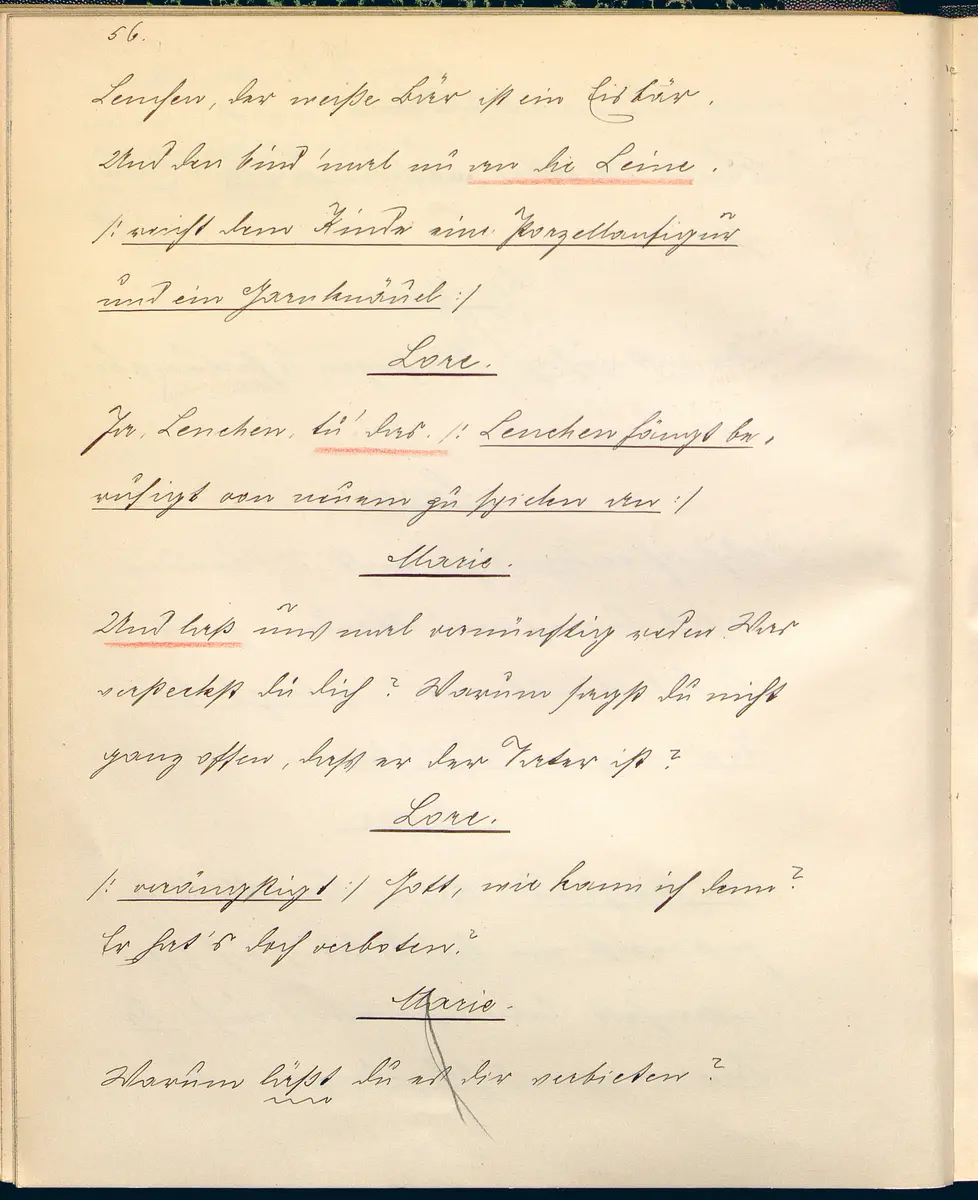 56.
Lenchen, der weiße Bär ist ein Eisbär.
Und den bind' mal nu an die Leine.
/: reicht dem Kinde eine Porzellanfigur
und ein Garnknäuel :/
Lore.
Ja, Lenchen, tu' das. /: Lenchen fängt be-
ruhigt von neuem zu spielen an :/
Marie.
Und laß uns mal vernünftig reden. Was
versteckst du dich? Warum sagst du nicht
ganz offen, daß er der Vater ist?
Lore.
/: verängstigt :/ Gott, wie kann ich denn?
Er hat's doch verboten?
Marie.
Warum läßt du es dir verbieten?